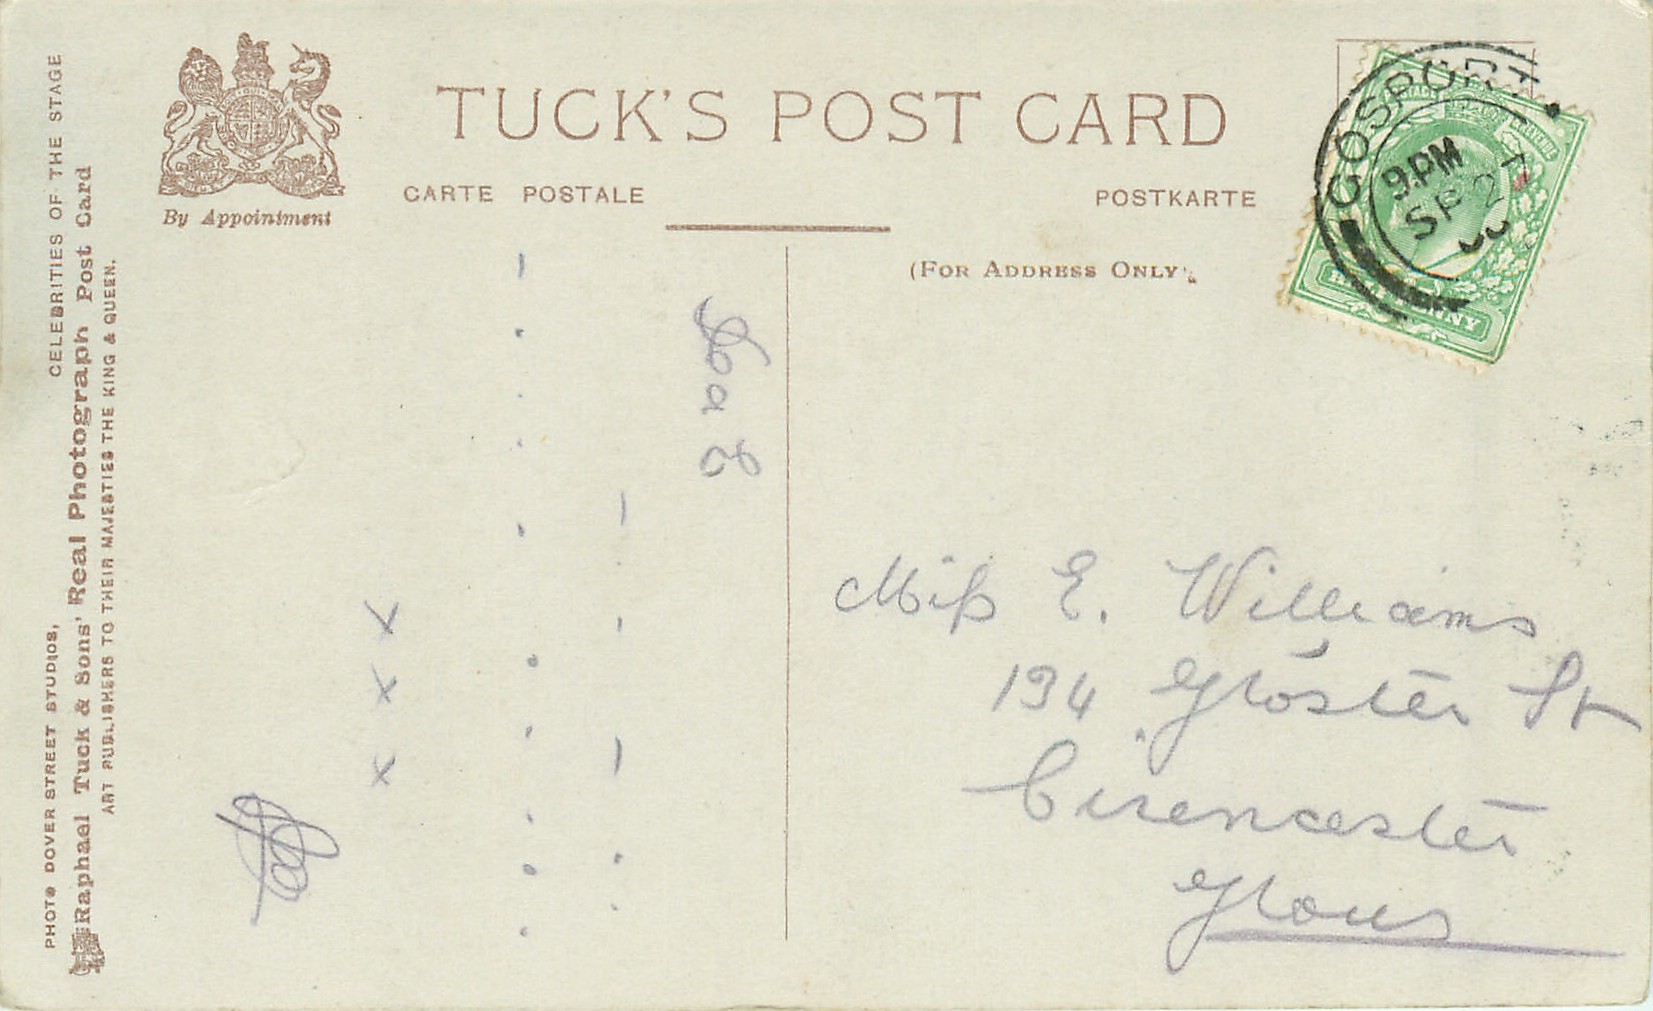 TUCK'S POST CARD
CARTE POSTALE
POSTKARTE
By Appointment
(FOR ADDRESS ONLY
PHOTO DOVER STREET STUDIOS, CELEBRITIES OF THE STAGE
Raphael Tuck & Sons' Real Photograph Post Card
ART PUBLISHERS TO THEIR MAJESTIES THE KING & QUEEN.
GOSPORT
9.PM
SP 27
HALFPENNY
x
x
x
Miss E. Williams
134 Gloster St
Cirencester
Glous